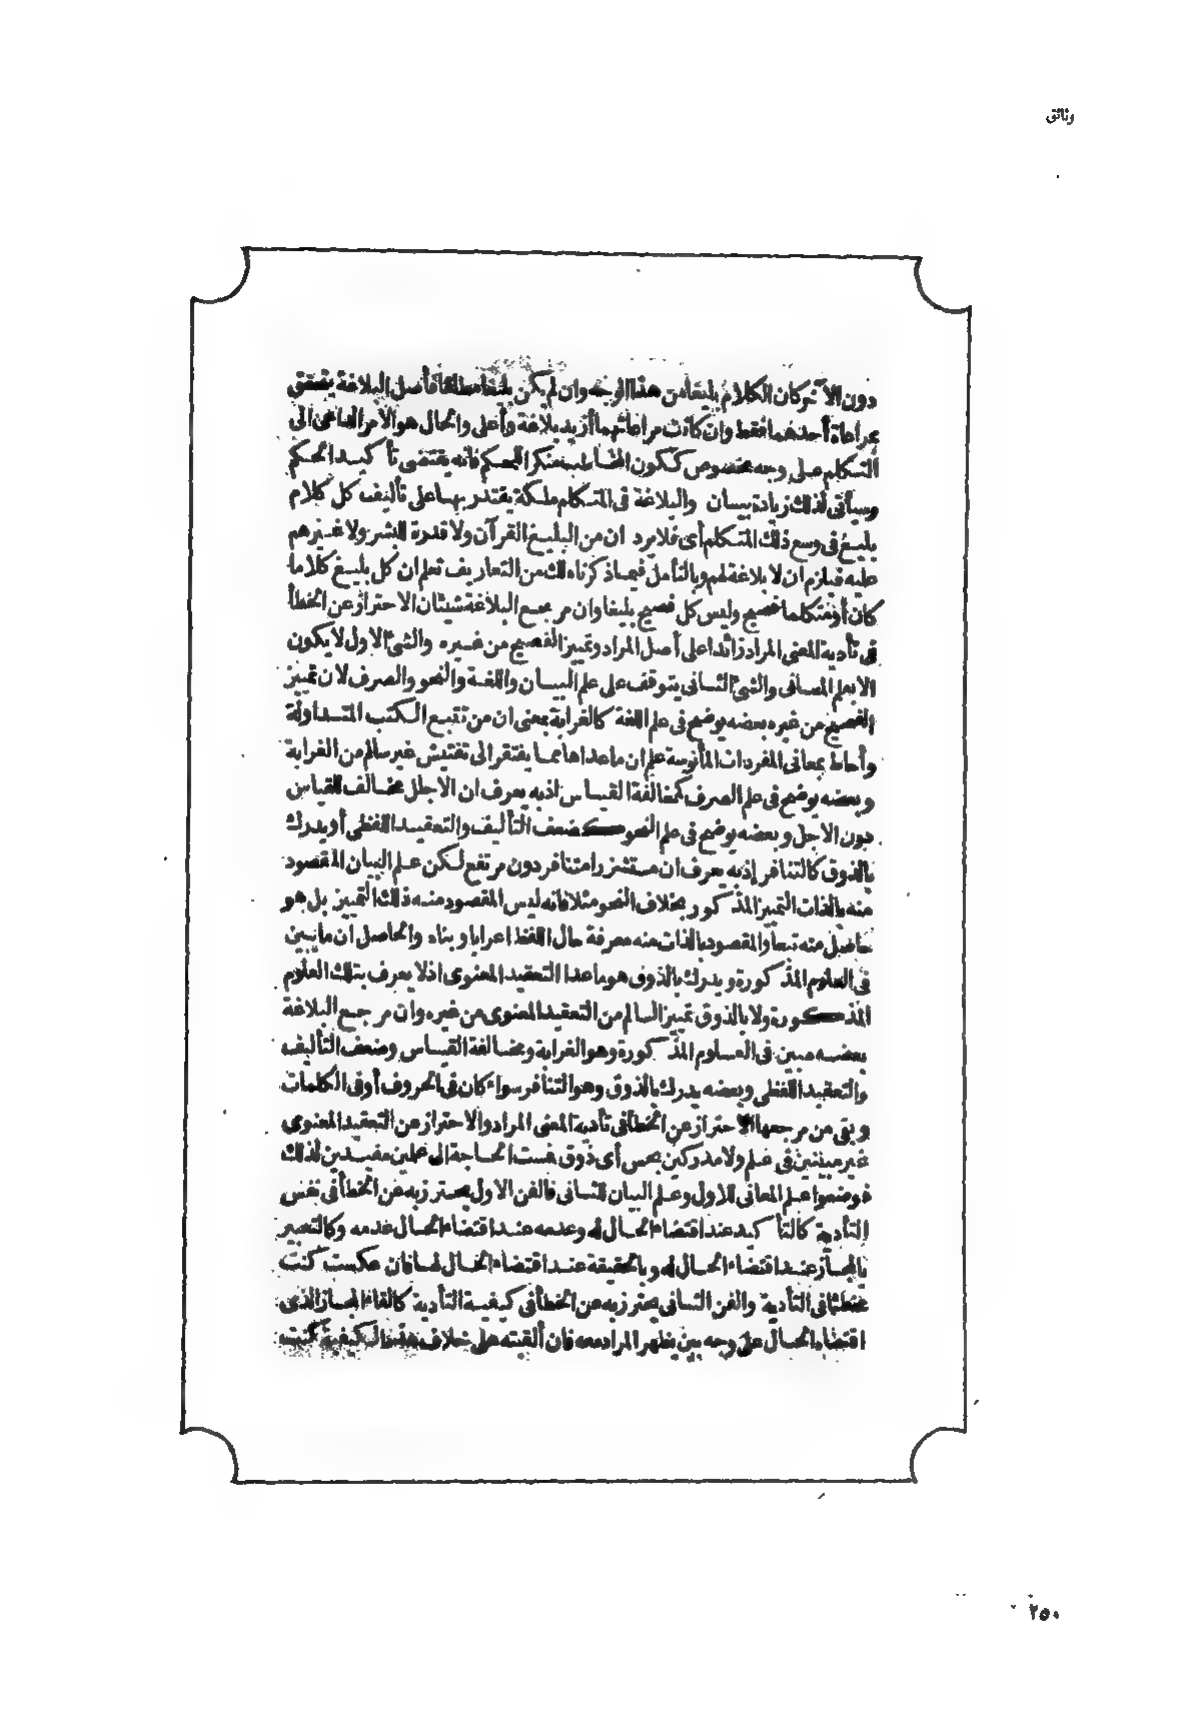 وثائق
دون الآخر كان الكلام بليغا من هذا الوجه وان لم يكن بليغا مطلقا فأصل البلاغة يتحقق
بمراعاة أحدهما فقط وان كانت مراعاتهما أزيد بلاغة وأعلى والحال هو الامر الداعى الى
التكلم على وجه مخصوص ككون المخاطب منكرا للحكم فانه يقتضى تأكيد الحكم
وسيأتى لذلك زيادة بيان والبلاغة فى المتكلم ملكة يقتدر بها على تأليف كل كلام
بليغ فى وسع ذلك المتكلم أى فلا يرد ان من البليغ القرآن ولا قدرة للبشر ولا غيرهم
عليه فيلزم ان لا بلاغة لهم وبالتأمل فيما ذكرناه لك من التعاريف تعلم ان كل بليغ كلاما
كان أو متكلما فصيح وليس كل فصيح بليغا وان مرجع البلاغة شيئان الاحتراز عن الخطأ
فى تأدية المعنى المراد زائدا على أصل المراد وتمييز الفصيح من غيره والشئ الاول لا يكون
الا بعلم المعانى والشئ الثانى يتوقف على علم البيان واللغة والنحو والصرف لان تمييز
الفصيح من غيره بعضه يوضح فى علم اللغة كالغرابة بمعنى ان من تتبع الكتب المتداولة
وأحاط بمعانى المفردات المأنوسة علم ان ما عداها مما يفتقر الى تفتيش غير سالم من الغرابة
وبعضه يوضح فى علم الصرف كمخالفة القياس اذ به يعرف ان الاجلل مخالف للقياس
دون الاجل وبعضه يوضح فى علم النحو كضعف التأليف والتعقيد اللفظى أو يدرك
بالذوق كالتنافر إذ به يعرف ان مستشزرا متنافر دون مرتفع لكن علم البيان المقصود
منه بالذات التمييز المذكور بخلاف النحو مثلا فانه ليس المقصود منه ذلك التمييز بل هو
حاصل منه تبعا والمقصود بالذات منه معرفة حال اللفظ اعرابا وبناء والحاصل ان ما تبين
فى العلوم المذكورة ويدرك بالذوق هو ما عدا التعقيد المعنوى اذ لا يعرف بتلك العلوم
المذكورة ولا بالذوق تمييز السالم من التعقيد المعنوى من غيره وان مرجع البلاغة
بعضه مبين فى العلوم المذكورة وهو الغرابة ومخالفة القياس وضعف التأليف
والتعقيد اللفظى وبعضه يدرك بالذوق وهو التنافر سواء كان فى الحروف أو فى الكلمات
وبقى من مرجعها الاحتراز عن الخطأ فى تأدية المعنى المراد والاحتراز عن التعقيد المعنوى
غير مبينين فى علم ولا مدركين بحس أى ذوق فمست الحاجة الى علمين مفيدين لذلك
فوضعوا علم المعانى للاول وعلم البيان للثانى فالفن الاول يحترز به عن الخطأ فى نفس
التأدية كالتأكيد عند اقتضاء الحال له وعدمه عند اقتضاء الحال عدمه وكالتعبير
بالمجاز عند اقتضاء الحال له وبالحقيقة عند اقتضاء الحال لها فان عكست كنت
مخطئا فى التأدية والفن الثانى يحترز به عن الخطأ فى كيفية التأدية كالقاء المجاز الذى
اقتضاه الحال على وجه بين يظهر المراد معه فان ألقيته على خلاف هذه الكيفية كنت
٢٥٠